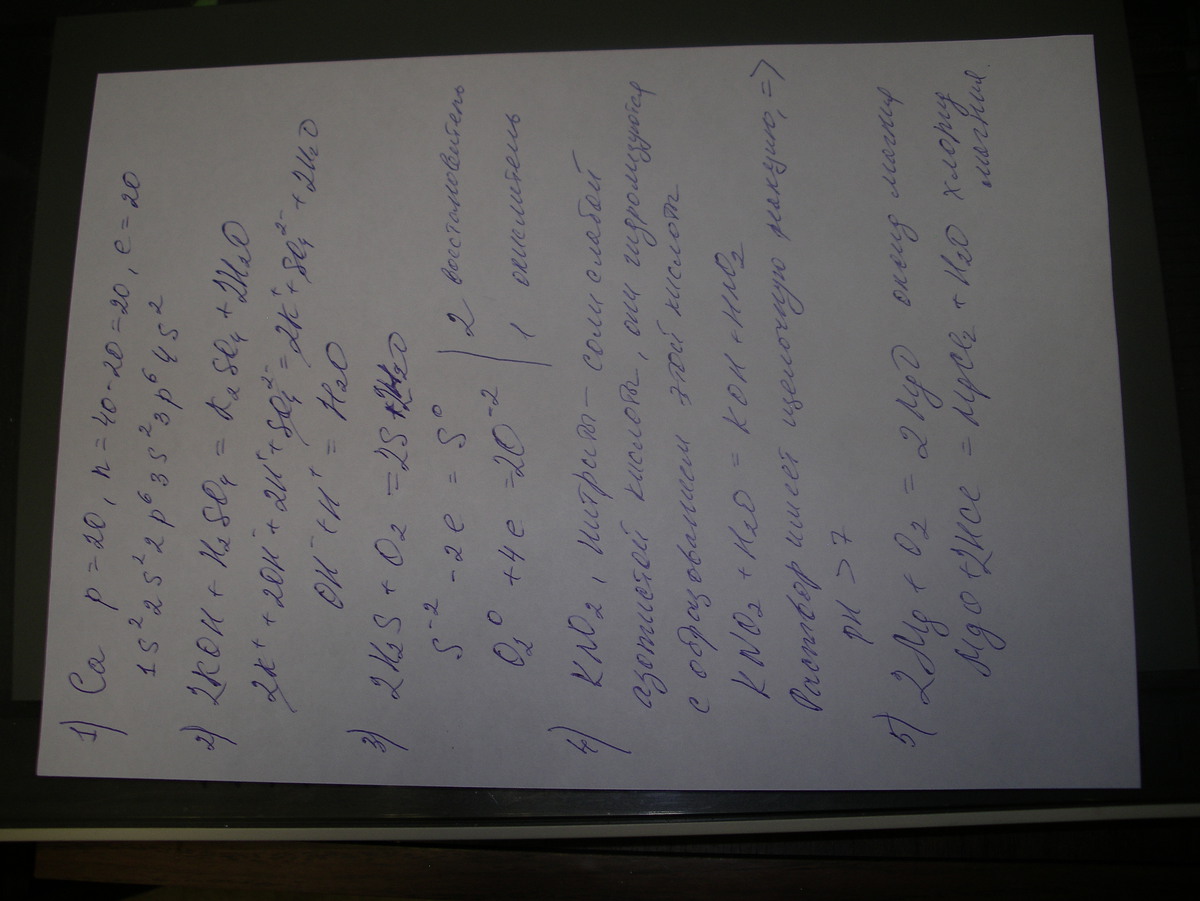 1) Ca p = 20, n = 40-20 = 20, e = 20
1s² 2s² 2p⁶ 3s² 3p⁶ 4s²
2) 2KOH + H₂SO₄ = K₂SO₄ + 2H₂O
2K⁺ + 2OH⁻ + 2H⁺ + SO₄²⁻ = 2K⁺ + SO₄²⁻ + 2H₂O
OH⁻ + H⁺ = H₂O
3) 2H₂S + O₂ = 2S + 2H₂O
S⁻² - 2e = S⁰ | 2 восстановитель
O₂⁰ + 4e = 2O⁻² | 1 окислитель
4) KNO₂, нитриты – соли слабой
азотистой кислоты, они гидролизуются
с образованием этой кислоты
KNO₂ + H₂O = KOH + HNO₂
Раствор имеет щелочную реакцию, =>
pH > 7
5) 2Mg + O₂ = 2MgO оксид магния
MgO + 2HCl = MgCl₂ + H₂O хлорид
магния.